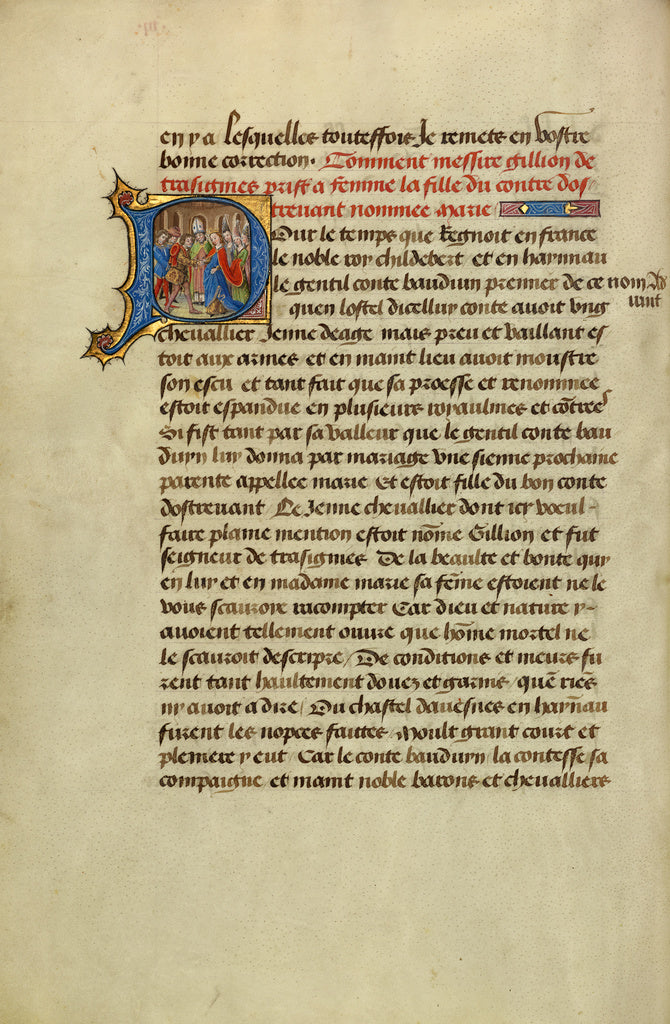 en y a Lesquelles touteffois Je remets en vostre
bonne correction. Comment messire gillion de
trasignies prist a femme la fille du conte dos/
trevant nommee marie
Pour le temps que Regnoit en france
le noble roy childebert et en haynnau
le gentil conte bauduin premier de ce nom Ad
quen lostel dicelluy conte avoit ung
vint
chevallier Jenne deage mais preu et vaillant es
toit aux armes et en maint lieu avoit moustre
son escu et tant fait que sa proesse et renommee
estoit espandue en plusieurs royaulmes et cõtrees
Si fist tant par sa valleur que le gentil conte bau
duyn luy donna par mariage une sienne prochaine
parente appellee marie Et estoit fille du bon conte
dostrevant Le Jenne chevallier dont icy voeul-
faire plaine mention estoit nõme Gillion et fut
seigneur de trasignies De la beaulte et bonte quy
en luy et en madame marie sa fẽme estoient ne le
vous scauroye racompter Car dieu et nature y-
avoient tellement ouvre que hõme mortel ne
le scauroit descripre / De conditions et meurs fu
rent tant haultement douez et garnis quẽ riẽs
ny avoit a dire / Ou chastel davesnes en haynau
furent les nopces faittes Moult grant court et
pleniere y eut Car le conte bauduyn la contesse sa
compaigne et maint noble barons et chevalliers